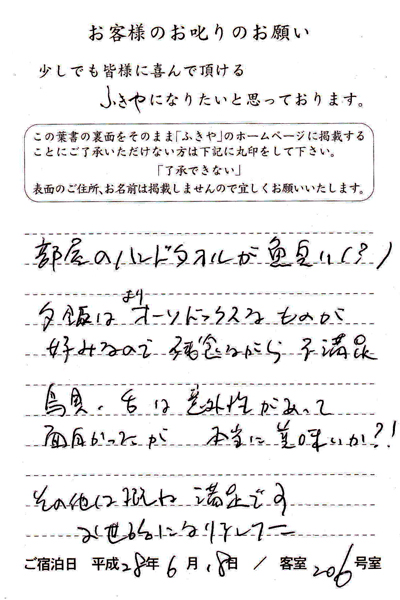 お客様のお叱りのお願い
少しでも皆様に喜んで頂ける
ふきやになりたいと思っております。
この葉書の裏面をそのまま「ふきや」のホームページに掲載する
ことにご了承いただけない方は下記に丸印をして下さい。
「了承できない」
表面のご住所、お名前は掲載しませんので宜しくお願いいたします。
部屋のハンドタオルが魚臭い(?)
夕飯はよりオーソドックスなものが
好みなので 残念ながら 不満足
鳥貝・舌は意外性があって
面白かったが 本当に美味いか?!
その他は概ね 満足です
お世話になりました
ご宿泊日 平成28年6月18日 / 客室206号室